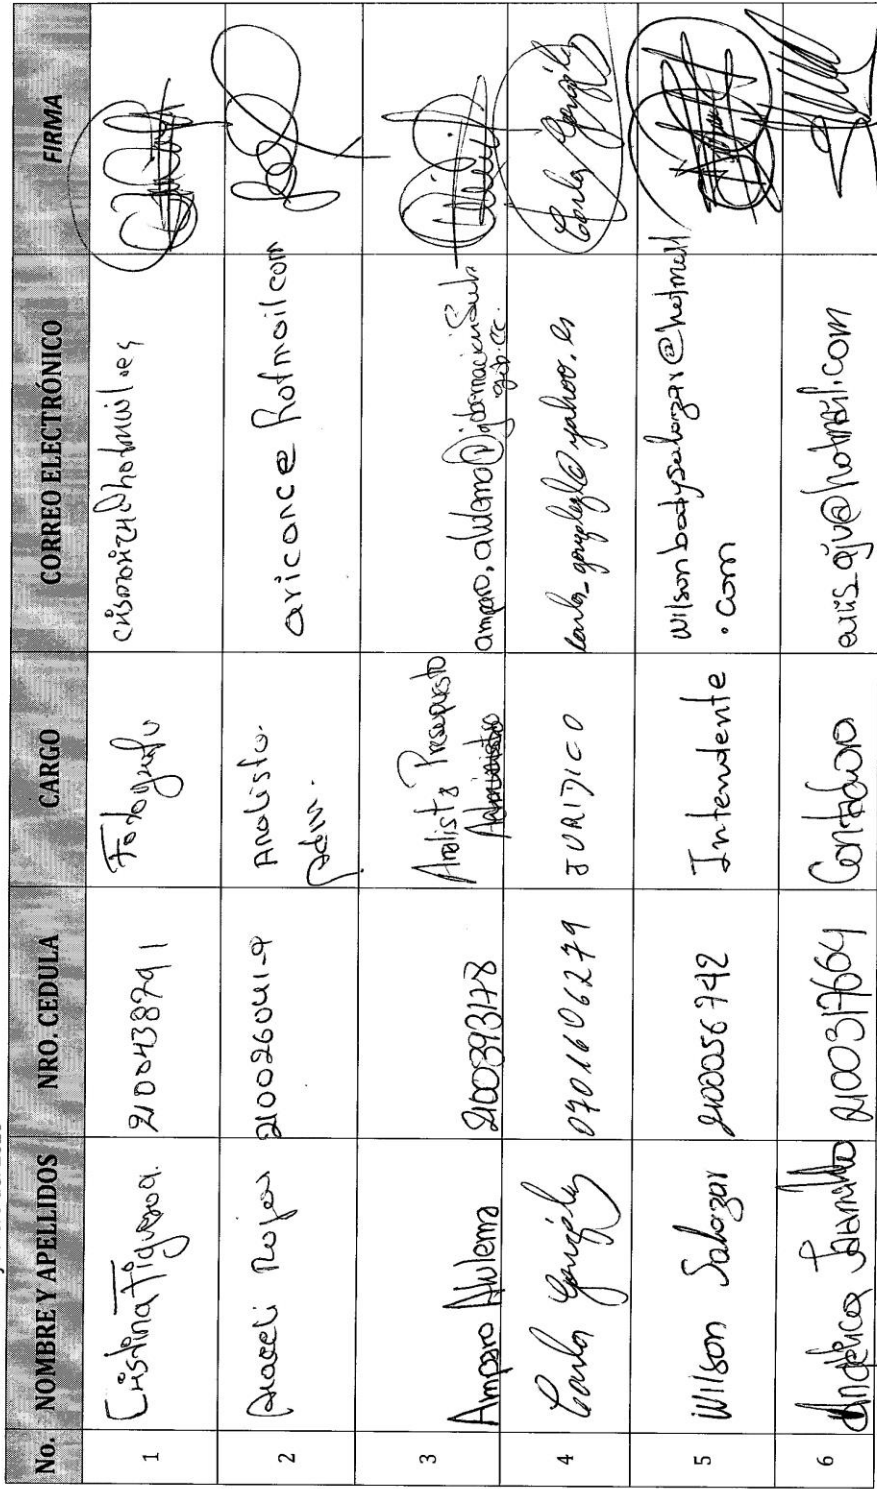 No. NOMBRE Y APELLIDOS NRO. CEDULA CARGO CORREO ELECTRÓNICO FIRMA
1 Cristina Figueroa. 2100438791 Fotografo
2 Araceli Rojas 210026041-9 Analista. Adm. aricarce@hotmail.com
3 Amparo Aulema 2100393178 Analista Presupuesto
Administrativo
4 Carla González 0701606279 JURIDICO carla_gonzalez@yahoo.es Carla González
5 Wilson Salazar 2100056742 Intendente wilsonbodysalazar@hotmail
.com
6 Angélica Jaramillo 2100317664 Contadora @hotmail.com